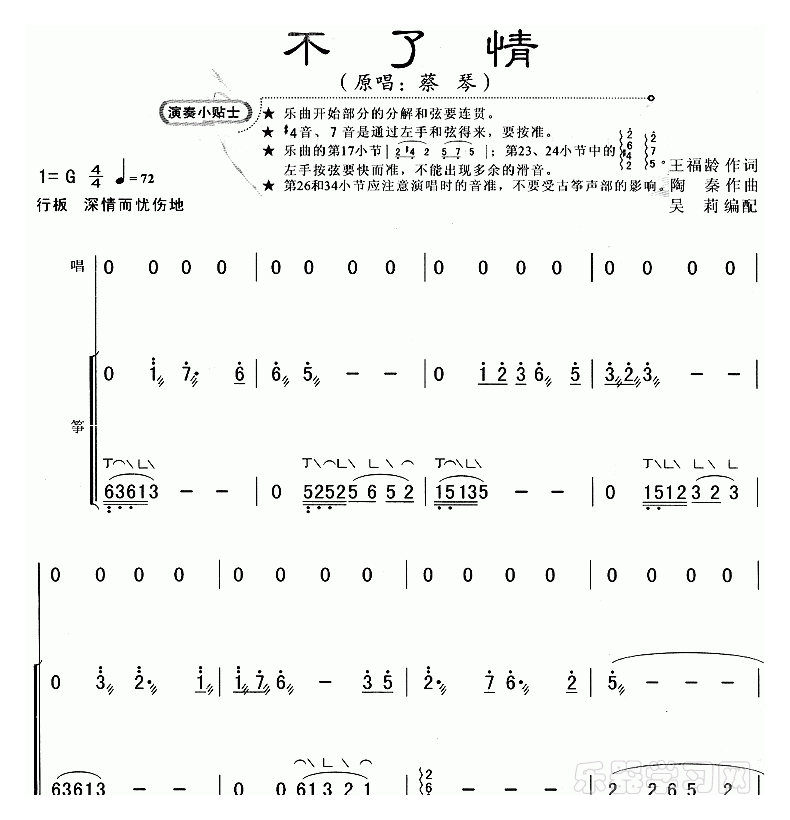 不了情
（原唱：蔡 琴）
演奏小贴士
★ 乐曲开始部分的分解和弦要连贯。
★ #4音、7音是通过左手和弦得来，要按准。
★ 乐曲的第17小节| 2 #4 2 5 7 5 |；第23、24小节中的
左手按弦要快而准，不能出现多余的滑音。
★ 第26和34小节应注意演唱时的音准，不要受古筝声部的影响。
王福龄 作词
陶 秦 作曲
吴 莉 编配
1=G 4/4 ♩=72
行板 深情而忧伤地
唱 0 0 0 0 | 0 0 0 0 | 0 0 0 0 | 0 0 0 0
0 1 7· 6 | 6 5 - - | 0 1 2 3 6 5 | 3 2 3 - -
筝
63613 - - | 0 5252 5 6 5 2 | 15135 - - | 0 1512 3 2 3
0 0 0 0 | 0 0 0 0 | 0 0 0 0 | 0 0 0 0
0 3 2· 1 | 1 7 6 - 3 5 | 2· 7 6· 2 | 5 - - -
63613 - - | 0 0 6 1 3 2 1 | 2 6 - - - | 2 2 6 5 2
乐器学习网